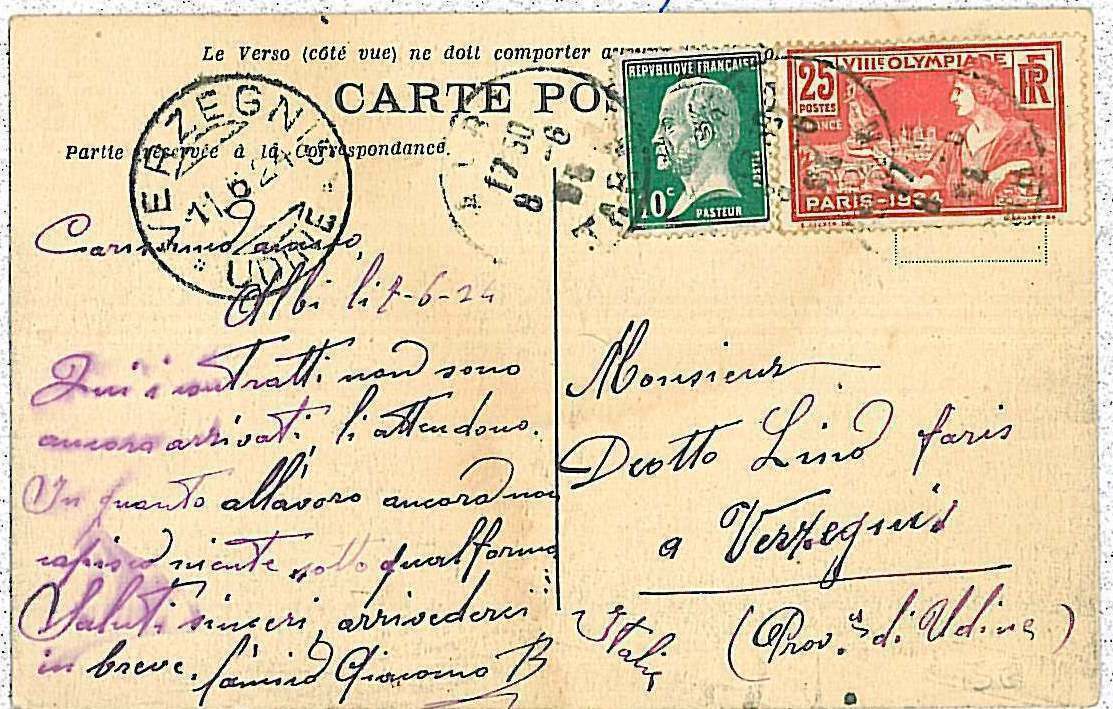 Le Verso (côté vue) ne doit comporter
CARTE PO
Partie réservée à la Correspondance.
VERZEGNIS
11 6 24
UDINE
ALBI
17 30
8 -6
24
TARN
REPVBLIQVE FRANÇAISE
10 c
POSTES
PASTEUR
25
POSTES
FRANCE
VIIIE OLYMPIADE
RF
PARIS-1924
Carissimo amico,
Albi li 7-6-24
Qui i contratti non sono
ancora arrivati, li attendono.
In quanto all'avoro ancora non
capisco niente sotto qual forma
Saluti sinceri, arrivederci
in breve. l'amico Giacomo B
Monsieur
Deotto Lino faris
a Verzegnis
(Prov. di Udine)
Italia